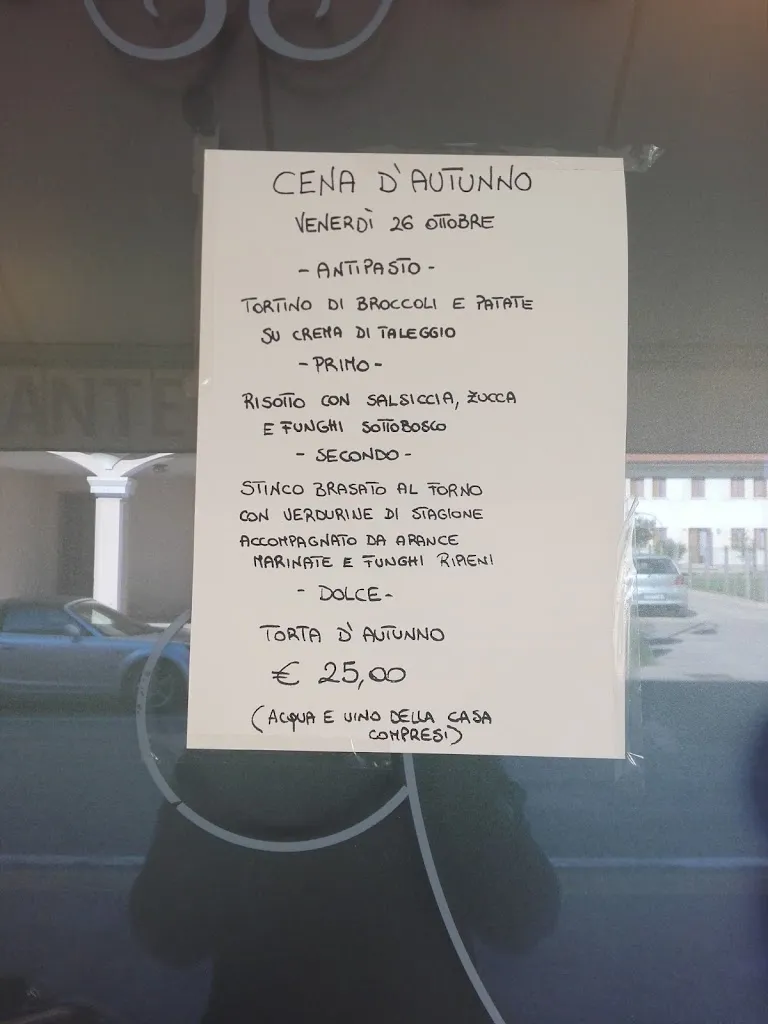 CENA D'AUTUNNO
VENERDÌ 26 OTTOBRE
- ANTIPASTO -
TORTINO DI BROCCOLI E PATATE
SU CREMA DI TALEGGIO
- PRIMO -
RISOTTO CON SALSICCIA, ZUCCA
E FUNGHI SOTTOBOSCO
- SECONDO -
STINCO BRASATO AL FORNO
CON VERDURINE DI STAGIONE
ACCOMPAGNATO DA ARANCE
MARINATE E FUNGHI RIPIENI
- DOLCE -
TORTA D'AUTUNNO
€ 25,00
(ACQUA E VINO DELLA CASA
COMPRESI)
ANTE